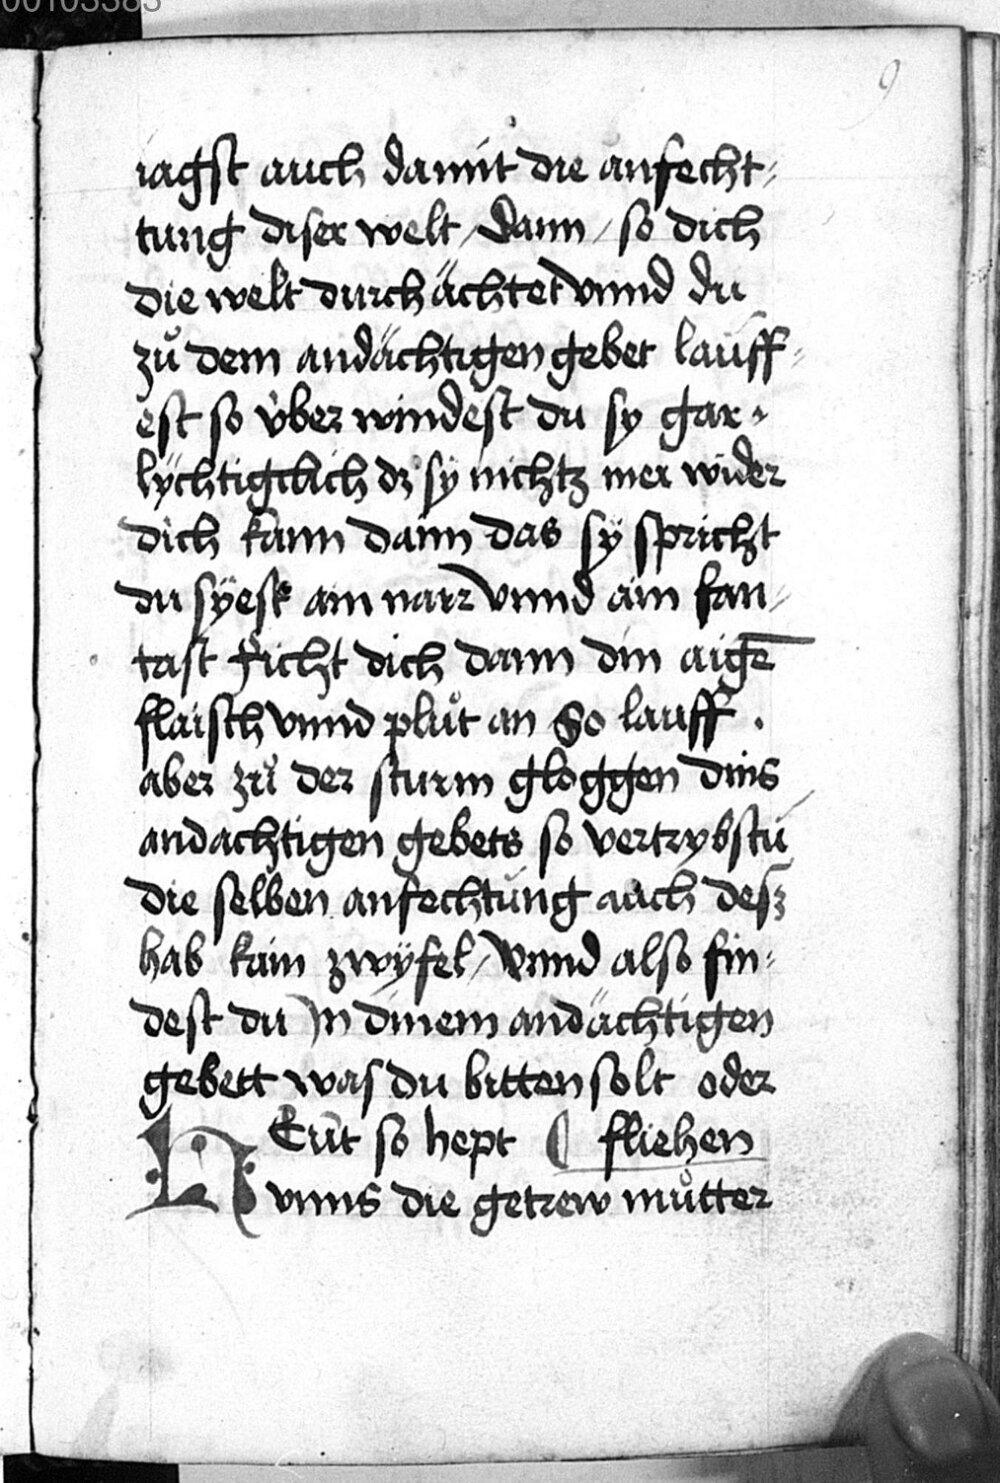 00103383
9
iagst auch damit die anfecht-
tung diser welt / dann / so dich
die welt durchächtet vnnd du
zů dem andächtigen gebet lauff-
est so v̈ber windest du sy gar
lychtigclich dz sy nichtz mer wider
dich kann dann das sy spricht
du syest ain narr vnnd ain fan-
tast ficht dich dann din aigē
flaisch vnnd plůt an So lauff .
aber zů der sturm gloggen dins
andachtigen gebets so vertrybstu
die selben anfechtung auch desz
hab kain zwyfel / Vnnd also fin-
dest du Jn dinem andächtigen
gebett was du bitten solt oder
fliehen
HEut so hept
vnns die getrew můtter